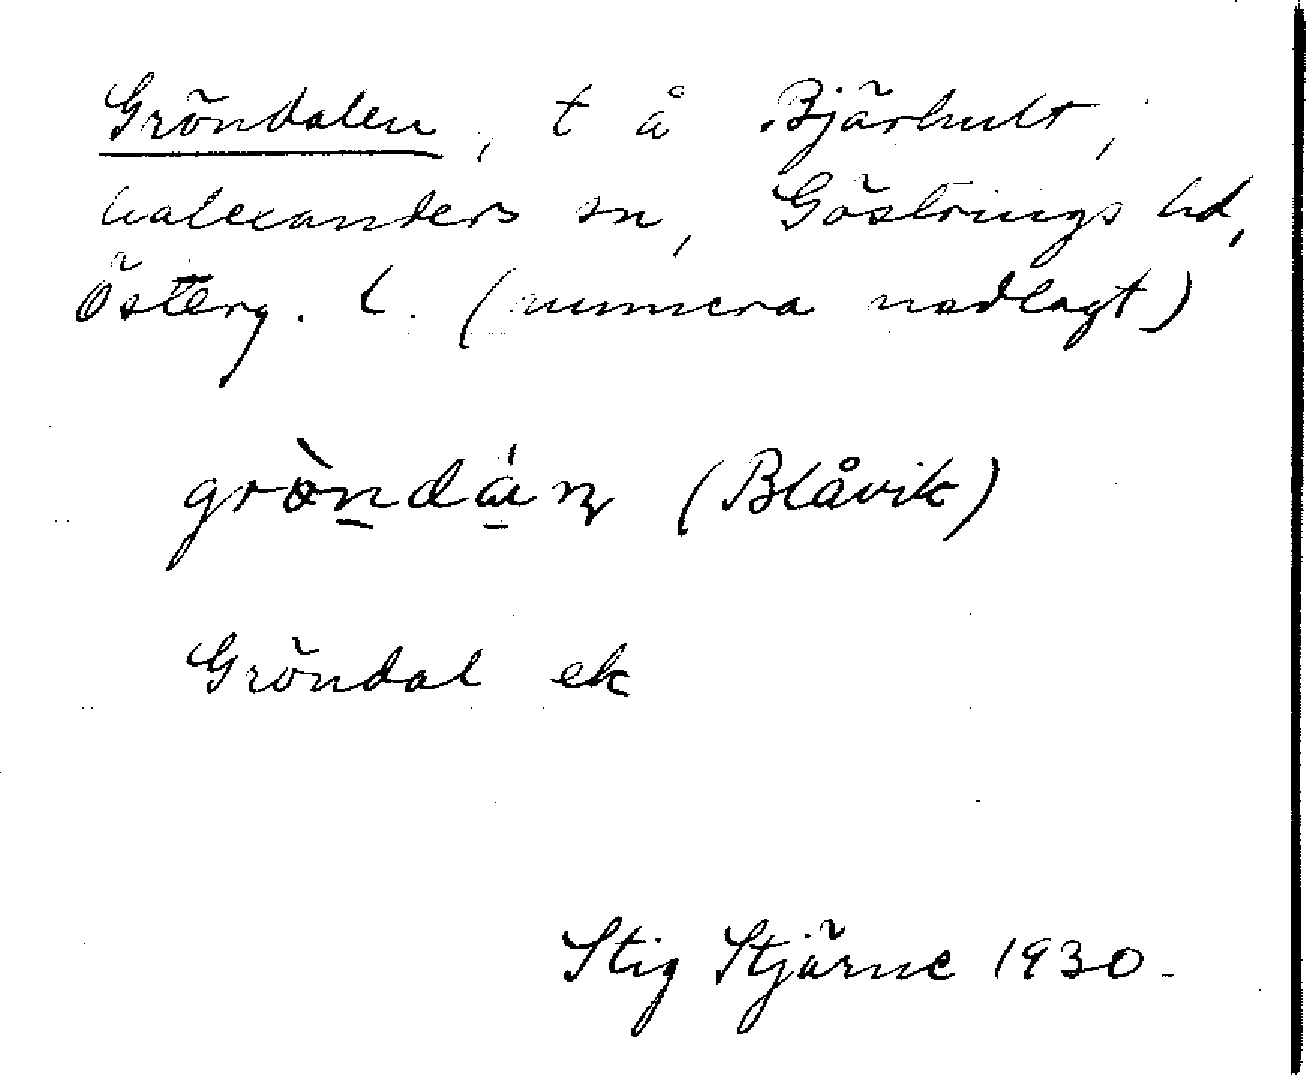 Gröndalen, t å Bjärhult,
Malexanders sn, Göstrings hd,
Österg. l. (numera nedlagt)
gròndán (Blåvik)
Gröndal ek
Stig Stjärne 1930.